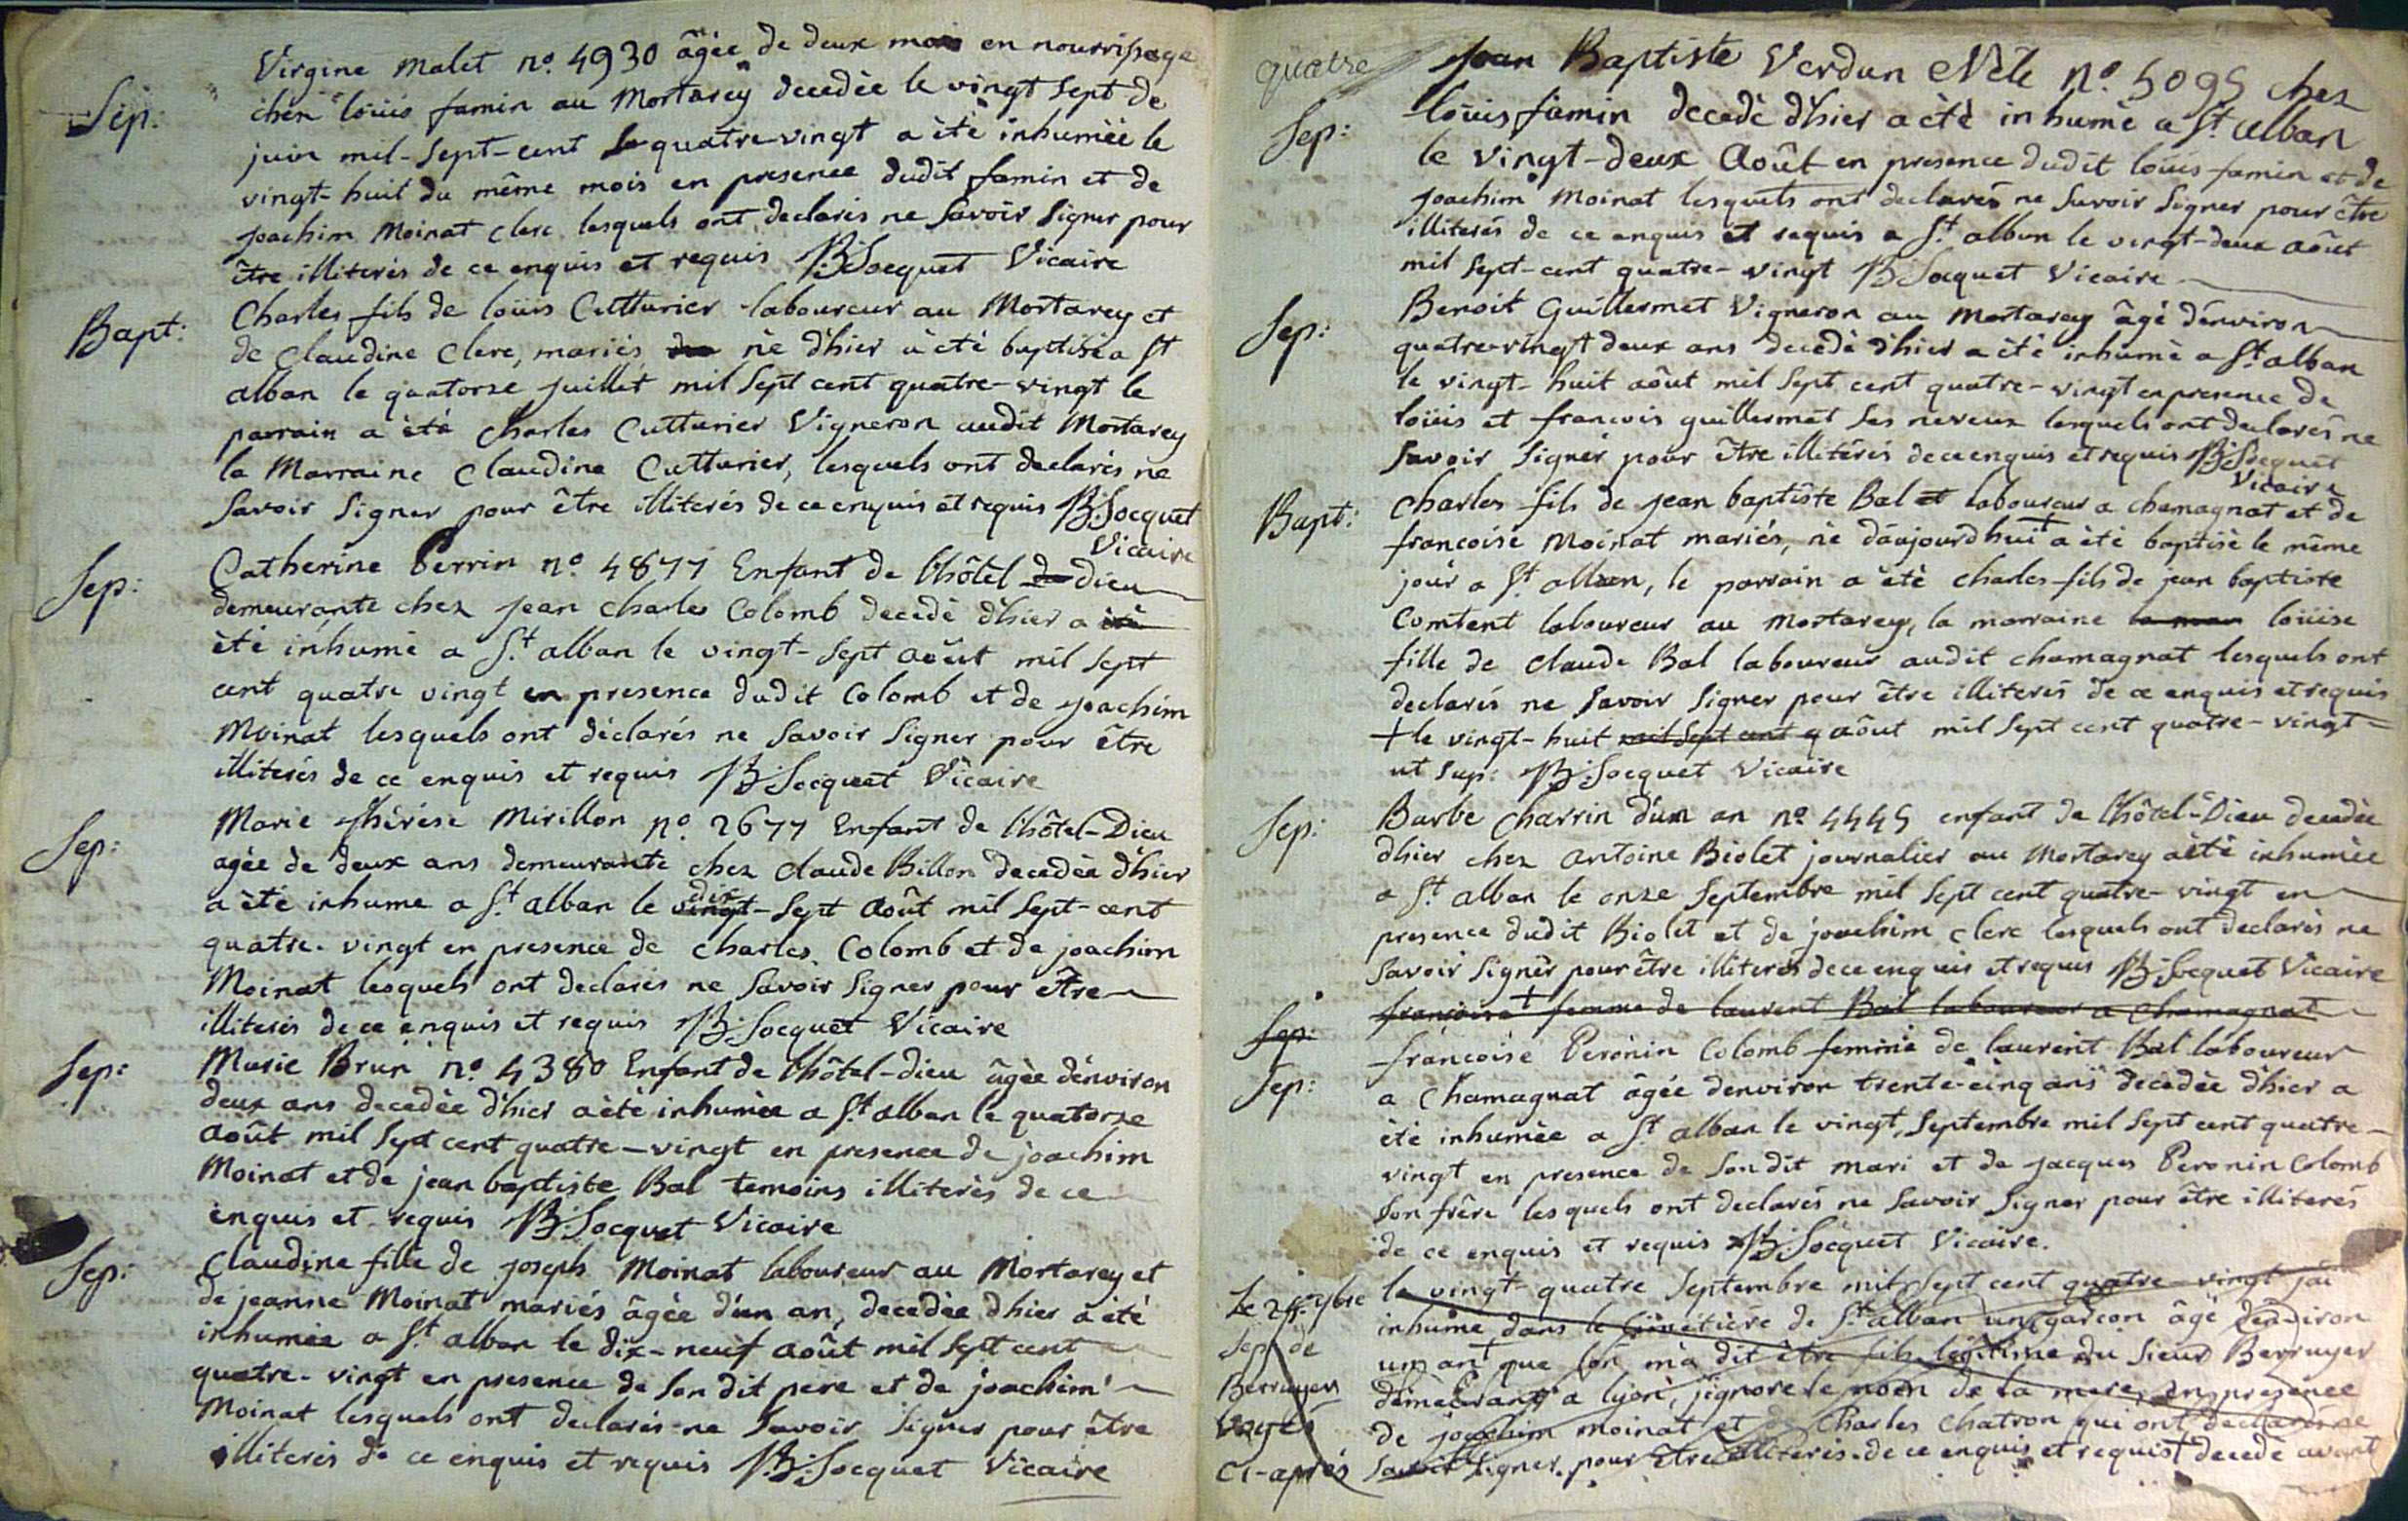 Virgine Malet n.o 4930 âgèe de deux mois en nourrissage
Sep: chèz loüis famin au Mortarey decedèe le vingt sept de
juin mil-sept-cent quatre-vingt a ètè inhumèe le
vingt-huit du même mois en presence dudit famin et de
joachim Moinat clerc lesquels ont declarès ne savoir signer pour
être illiterès de ce enquis et requis B: Socquet Vicaire
Bapt: Charles fils de loüis Cutturier laboureur au Mortarey et
de Claudine Clerc, mariès nè d'hier a ètè baptisè a St
alban le quatorze juillet mil sept cent quatre-vingt le
parrain a ètè Charles Cutturier Vigneron audit Mortarey
la Marraine Claudine Cutturier, lesquels ont declarès ne
savoir signer pour être illiterès de ce enquis et requis B: Socquet
Vicaire
Sep: Catherine Perrin n.o 4877 Enfant de l'hôtel de dieu
demeurante chez jean charles Colomb decedè d'hier a ètè
ètè inhumè a St. alban le vingt-sept août mil sept
cent quatre vingt en presence dudit Colomb et de joachim
Moinat lesquels ont dèclarès ne savoir signer pour être
illiterès de ce enquis et requis B: Socquet Vicaire
Sep: Marie thèrèse Mirillon n.o 2677 Enfant de l'hôtel-Dieu
agèe de deux ans demeurante chez claude Billon decedèe d'hier
a ètè inhume a St. alban le vingt dix-sept Août mil sept-cent
quatre-vingt en presence de charles Colomb et de joachim
Moinat lesquels ont declarès ne savoir signer pour être
illiterès de ce enquis et requis B: Socquet Vicaire
Sep: Marie Brun n.o 4380 Enfant de l'hôtel-dieu âgèe d'environ
deux ans decedèe d'hier a ètè inhumèe a St. alban le quatorze
Août mil sept cent quatre-vingt en presence de joachim
Moinat et de jean baptiste Bal temoins illiterès de ce
enquis et requis B: Socquet Vicaire
Sep: Claudine fille de joseph Moinat laboureur au Mortarey et
de jeanne Moinat mariès âgèe d'un an, decedèe d'hier a ètè
inhumèe a St. alban le dix-neuf août mil sept cent
quatre-vingt en presence de son dit pere et de joachim
Moinat lesquels ont declarès ne savoir signer pour être
illiterès de ce enquis et requis B: Socquet Vicaire
quatre
jean Baptiste Verdun n.o 5095 chez
Sep: loüis famin decedè d'hier a ètè inhumè a St. alban
le vingt-deux Août en presence dudit loüis famin et de
joachim Moinat lesquels ont declarès ne savoir signer pour être
illiterès de ce enquis et requis a St. alban le vingt-deux août
mil sept-cent quatre-vingt B: Socquet Vicaire
Sep: Benoit Guillermet Vigneron au Mortarey âgè d'environ
quatre-vingt deux ans decedè d'hier a ètè inhumè a St. alban
le vingt-huit août mil sept cent quatre-vingt en presence de
loüis et francois guillermet ses neveux lesquels ont declarès ne
savoir signer pour être illitèrès de ce enquis et requis B: Socquet
Vicaire
Bapt: Charles fils de jean baptiste Bal et laboureur a chamagnat et de
francoise Moinat mariès, nè d'aujourdhui + a ètè baptisè le même
jour a St. alban, le parrain a ètè charles fils de jean baptiste
Comtent laboureur au Mortarey, la marraine la mar loüise
fille de claude Bal laboureur audit chamagnat lesquels ont
declarès ne savoir signer pour être illiterès de ce enquis et requis
+ le vingt-huit mil sept cent q août mil sept cent quatre-vingt =
ut sup: B: Socquet Vicaire
Sep: Barbe Charrin d'un an n.o 4445 enfant de l'hôtel-Dieu decedèe
d'hier chez Antoine Biolet journalier au Mortarey a ètè inhumèe
a St. alban le onze Septembre mil sept cent quatre-vingt en
presence dudit Biolet et de joachim clerc lesquels ont declarès ne
savoir signer pour être illiterès de ce enquis et requis B: Socquet Vicaire
Sep: francoise + femme de laurent Bal laboureur a Chamagnat
francoise Peronin Colomb femme de laurent Bal laboureur
Sep: a Chamagnat âgèe d'environ trente-cinq ans decedèe d'hier a
ètè inhumèe a St. alban le vingt, Septembre mil sept cent quatre-
vingt en presence de son dit mari et de jacques Peronin Colomb
son frère lesquels ont declarès ne savoir signer pour être illiterès
de ce enquis et requis B: Socquet Vicaire.
Le 24. 7bre le vingt-quatre Septembre mil sept cent quatre-vingt jai
Sep: de inhumè dans le cimetière de St alban un garcon âgè d'environ
Berruyer un an que l'on m'a dit être fils lègitime du sieur Berruyer
Voyés demeurant a lyon, j'ignore le nom de la mere, en presence
Ci-après de joachim moinat et de Charles Chatron qui ont declarès ne
savoir signer. pour être illiterès. de ce enquis et requis + decedè avant